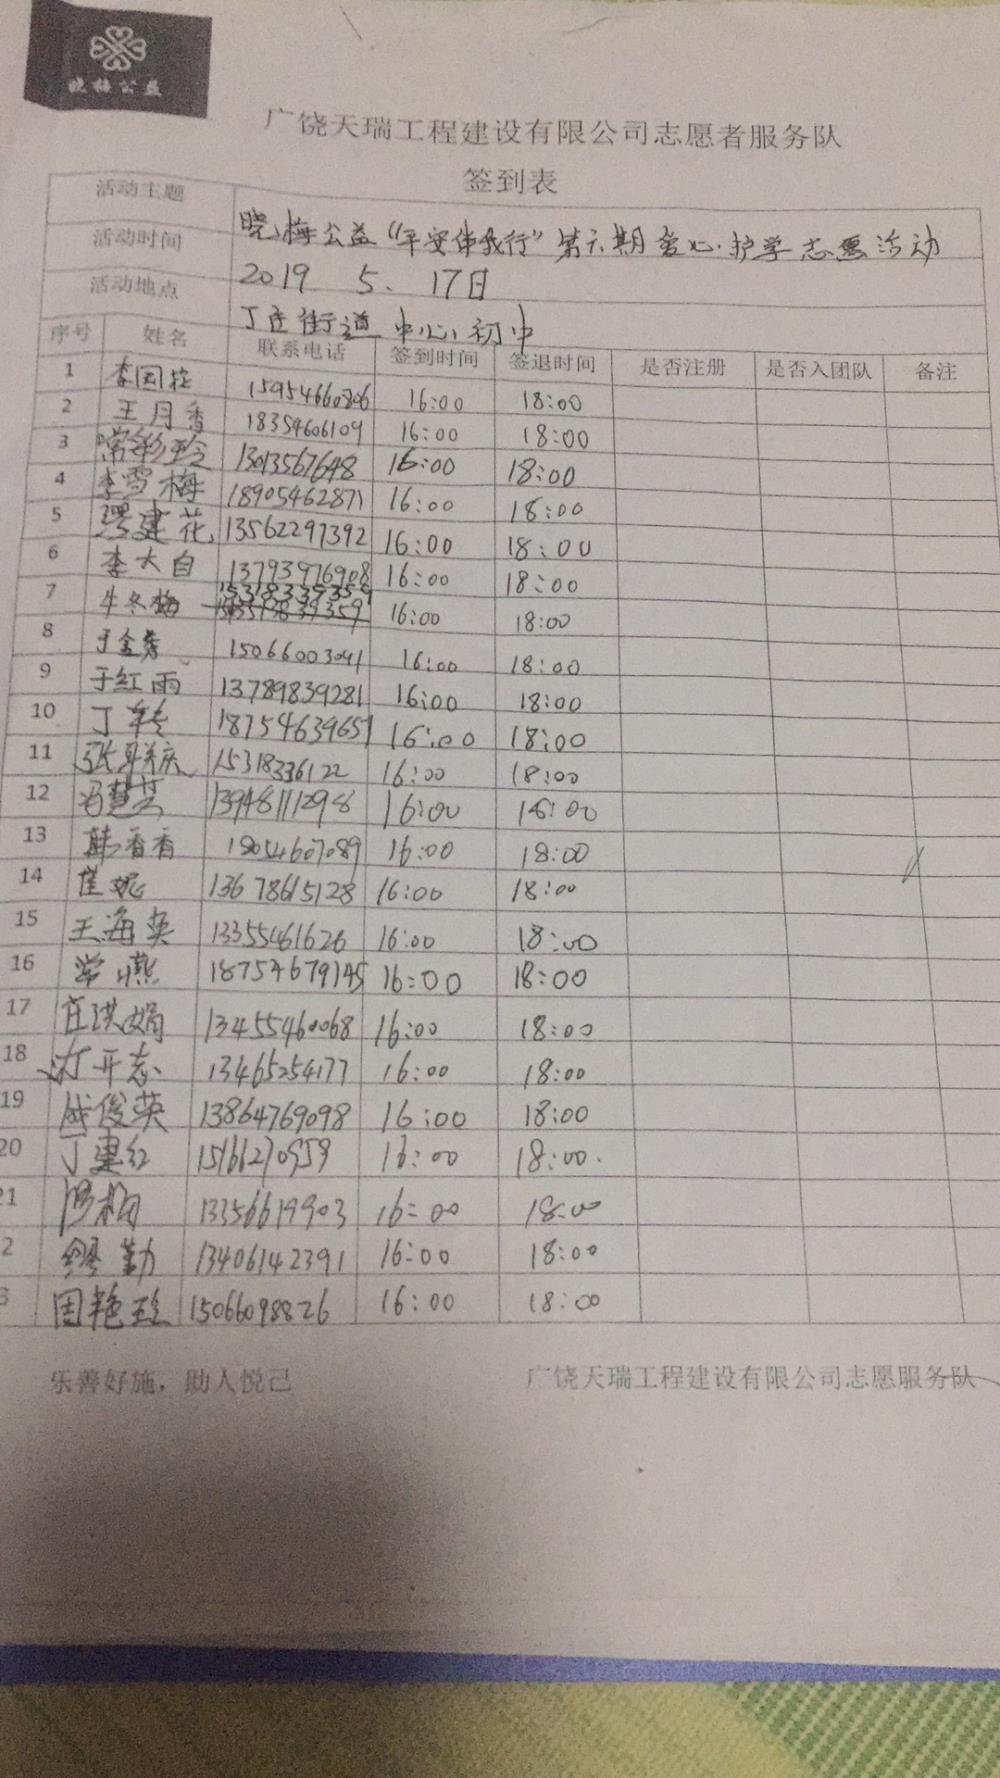 晓梅公益
广饶天瑞工程建设有限公司志愿者服务队
签到表
活动主题 晓梅公益“平安伴我行”第六期爱心护学志愿活动
活动时间 2019 5. 17日
活动地点 丁庄街道中心初中
序号 姓名 联系电话 签到时间 签退时间 是否注册 是否入团队 备注
1 李国 15954660806 16:00 18:00
2 王月香 18354606109 16:00 18:00
3 常彩玲 13013567648 16:00 18:00
4 李雪梅 18905462871 16:00 18:00
5 建花 13562297392 16:00 18:00
6 李大自 13793976908 16:00 18:00
7 牛冬梅 15318339359 16:00 18:00
8 于金秀 15066003041 16:00 18:00
9 于红雨 13789839281 16:00 18:00
10 丁 18754639651 16:00 18:00
11 张联庆 15318336122 16:00 18:00
12 冯慧芸 13948111298 16:00 18:00
13 韩香香 18054607089 16:00 18:00
14 崔妮 13678615128 16:00 18:00
15 王海英 13355461626 16:00 18:00
16 常燕 18754679145 16:00 18:00
17 洪娟 13455460068 16:00 18:00
18 开志 13465254177 16:00 18:00
19 成俊英 13864769098 16:00 18:00
20 丁建红 15166270959 16:00 18:00.
21 梅 13356619903 16:00 18:00
2 缪勤 13406142391 16:00 18:00
3 周艳玲 15066098826 16:00 18:00
乐善好施，助人悦己 广饶天瑞工程建设有限公司志愿服务队